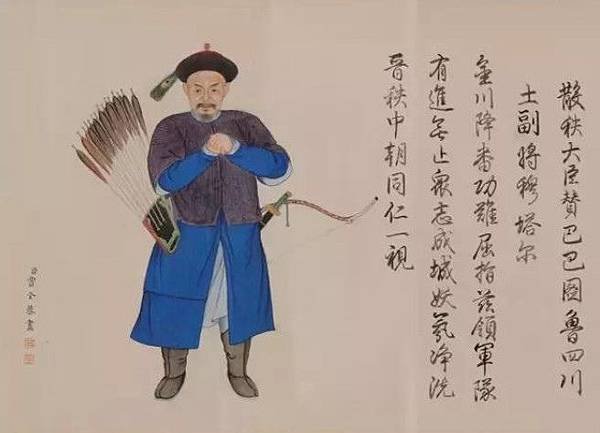 散秩大臣賛巴巴圖魯四川
土副將穆塔尔
金川降番功難屈指茲領軍隊
有進無止眾志成城妖氛淨洗
晉秩中朝同仁一視